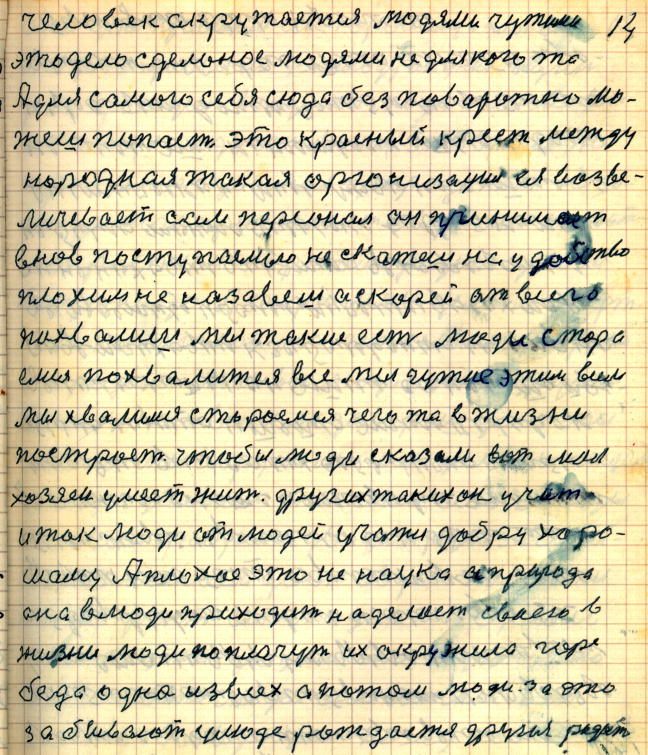 человек окружается людями чужими 14
это дело сделоное людями не для кого та
А для самого себя сюда без поваротно мо-
жеш попаст. это красный крест между
народная такая организация ея возве-
личевает сам персонал он принимает
внов поступаемыю не скажеш на удобство
плохим не назавеш а скорей от всего
похвалиш мы такие ест люди стора
емся похвалится все мы чужие этим всем
мы хвалимся стороемся чего та в жизни
построет. чтобы люди сказали вот мол
хозяен умеет жит. других таких он учит
и так люди от людей учажи добру хоро-
шаму А плохое это не наука а природа
она в люди приходит наделает своего в
жизни люди поплачут их окружило горе
беда одна из всех а потом люди за это
забывают улюде рождается другия